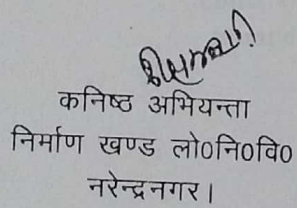 कनिष्ठ अभियन्ता
निर्माण खण्ड लो0नि0वि0
नरेन्द्रनगर।